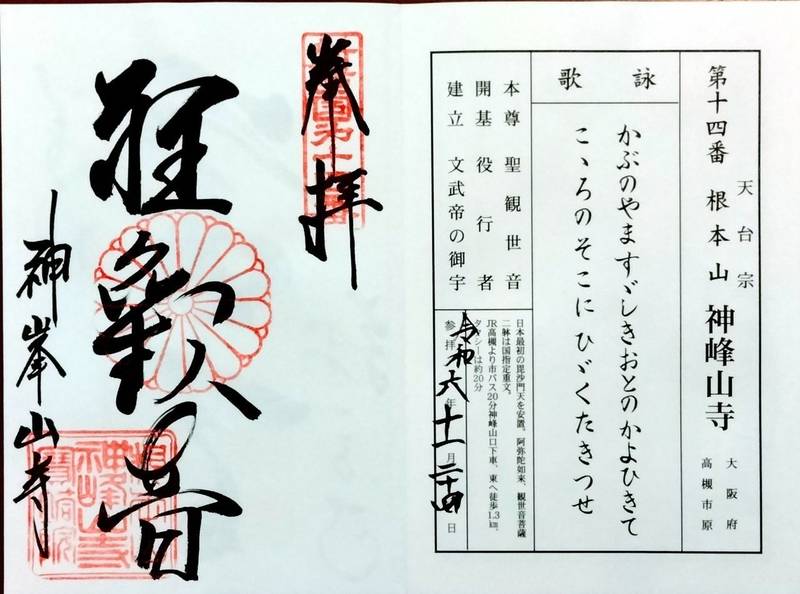 天台宗
第十四番 根本山 神峰山寺
大阪府
高槻市原
詠歌
かぶのやますゞしきおとのかよひきて
こゝろのそこにひゞくたきつせ
本尊 聖観世音
開基 役行者
建立 文武帝の御宇
日本最初の毘沙門天を安置。阿弥陀如来、観世音菩薩
二躰は国指定重文。
JR高槻より市バス20分神峰山口下車、東へ徒歩1.3㎞、
タクシーは約20分
参拝 令和六年十一月二十四日
奉拝
聖觀音
神峯山寺
神峰山寺